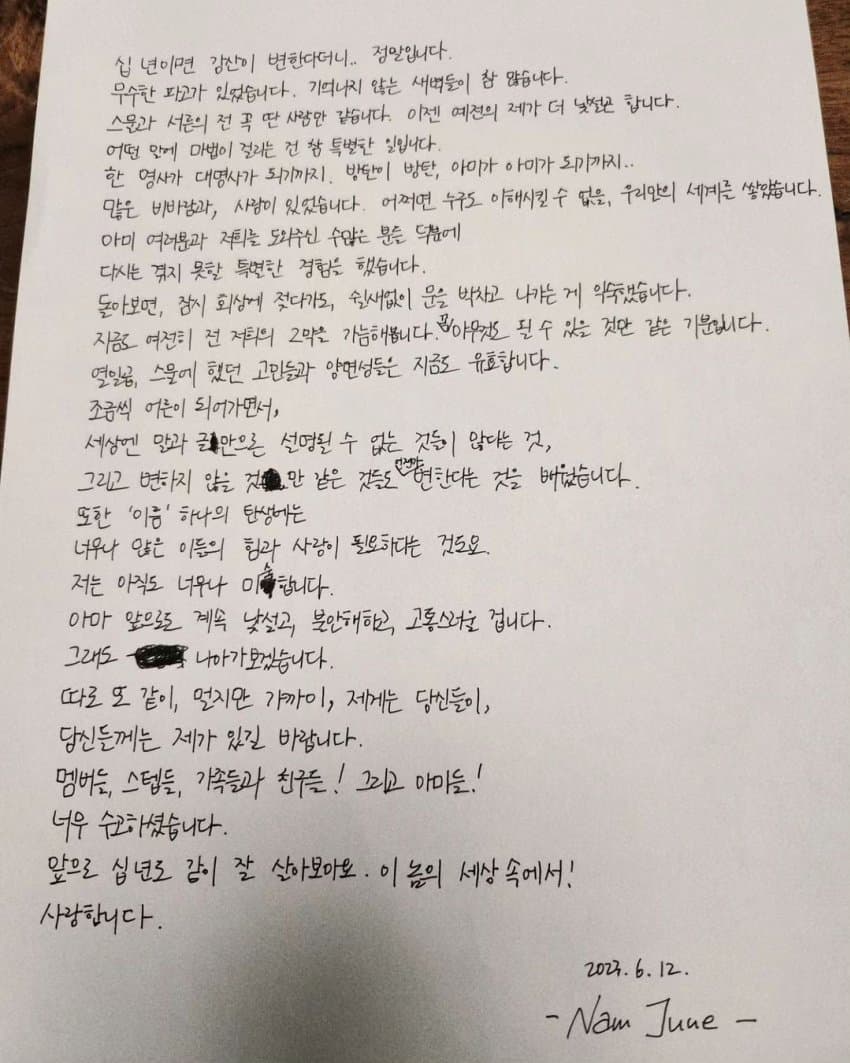 십 년이면 강산이 변한다더니.. 정말입니다.
무수한 파고가 있었습니다. 기억나지 않는 새벽들이 참 많습니다.
스물과 서른의 전 꼭 딴 사람만 같습니다. 이젠 예전의 제가 더 낯설곤 합니다.
어떤 말에 마법이 걸리는 건 참 특별한 일입니다.
한 명사가 대명사가 되기까지. 방탄이 방탄, 아미가 아미가 되기까지..
많은 비바람과, 사랑이 있었습니다. 어쩌면 누구도 이해시킬 수 없을, 우리만의 세계를 쌓았습니다.
아미 여러분과 저희를 도와주신 수많은 분들 덕분에
다시는 겪지 못할 특별한 경험을 했습니다.
돌아보면, 잠시 회상에 젖다가도, 쉴새없이 문을 박차고 나가는 게 익숙했습니다.
지금도 여전히 전 저희의 2막을 가늠해봅니다. 꼭 아무것도 될 수 있을 것만 같은 기분입니다.
열일곱, 스물에 했던 고민들과 양면성들은 지금도 유효합니다.
조금씩 어른이 되어가면서,
세상엔 말과 글만으론 설명될 수 없는 것들이 많다는 것,
그리고 변하지 않을 것만 같은 것들도 언젠가 변한다는 것을 배웠습니다.
또한 '이름' 하나의 탄생에는
너무나 많은 이들의 힘과 사랑이 필요하다는 것도요.
저는 아직도 너무나 미숙합니다.
아마 앞으로도 계속 낯설고, 불안해하고, 고통스러울 겁니다.
그래도 나아가보겠습니다.
따로 또 같이, 멀지만 가까이, 제게는 당신들이,
당신들께는 제가 있길 바랍니다.
멤버들, 스텝들, 가족들과 친구들! 그리고 아미들!
너무 수고하셨습니다.
앞으로 십년도 같이 잘 살아보아요. 이 놈의 세상 속에서!
사랑합니다.
2023. 6. 12.
- Nam June -